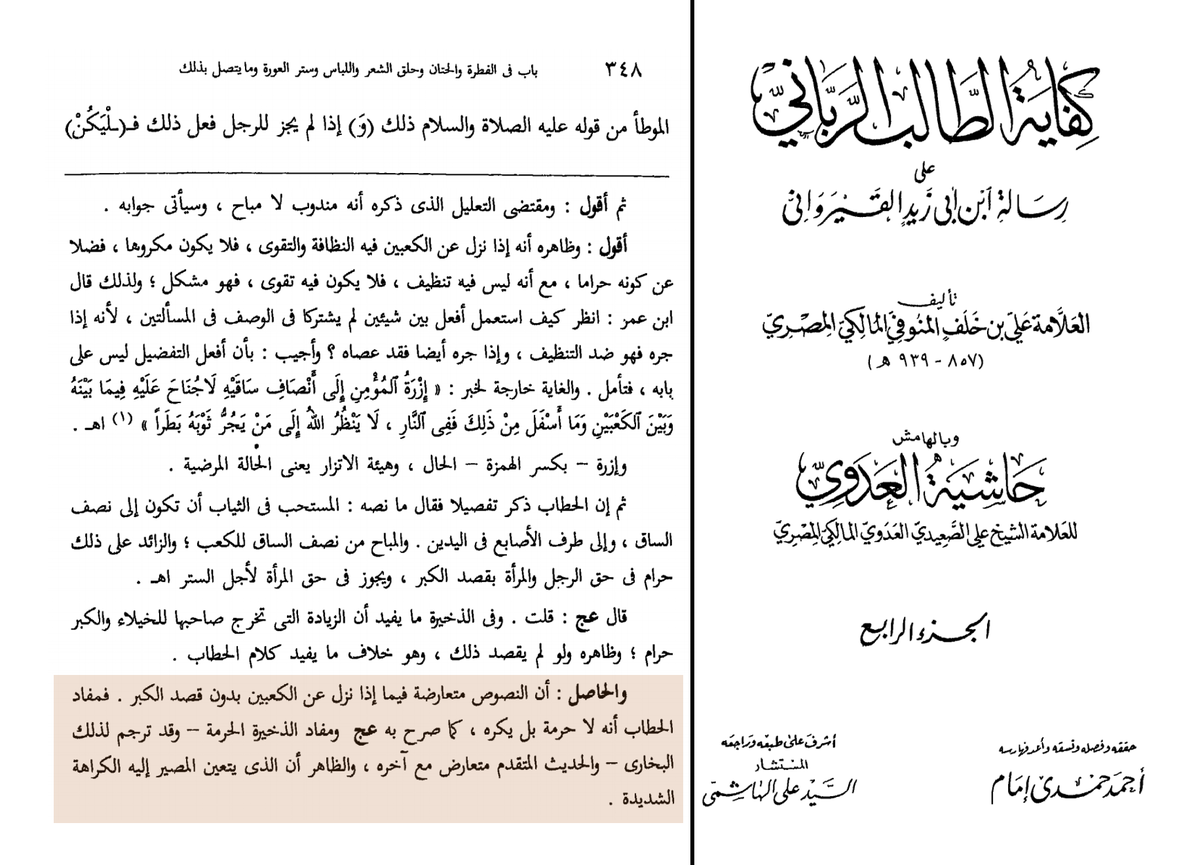 كفاية الطالب الرباني
على
رسالة ابن أبي زيد القيرواني
تأليف
العلامة علي بن خلف المنوفي المالكي المصري
(٨٥٧ - ٩٣٩ هـ)
وبالهامش
حاشية العدوي
للعلامة الشيخ علي الصعيدي العدوي المالكي المصري
الجزء الرابع
حققه وفصله ونسقه وأعد فهارسه
أحمد حمدي إمام
أشرف على طبعه وراجعه
المستشار
السيد علي الهاشمي
٣٤٨ باب فى الفطرة والختان وحلق الشعر واللباس وستر العورة وما يتصل بذلك
الموطأ من قوله عليه الصلاة والسلام ذلك (وَ) إذا لم يجز للرجل فعل ذلك فـ(ـلْيَكُنْ)
ثم أقول : ومقتضى التعليل الذى ذكره أنه مندوب لا مباح ، وسيأتى جوابه .
أقول : وظاهره أنه إذا نزل عن الكعبين فيه النظافة والتقوى ، فلا يكون مكروها ، فضلا
عن كونه حراما ، مع أنه ليس فيه تنظيف ، فلا يكون فيه تقوى ، فهو مشكل ؛ ولذلك قال
ابن عمر : انظر كيف استعمل أفعل بين شيئين لم يشتركا فى الوصف فى المسألتين ، لأنه إذا
جره فهو ضد التنظيف ، وإذا جره أيضا فقد عصاه ؟ وأجيب : بأن أفعل التفضيل ليس على
بابه ، فتأمل . والغاية خارجة لخبر : « إِزْرَةُ المُؤْمِنِ إِلَى أَنْصَافِ سَاقَيْهِ لَاجُنَاحَ عَلَيْهِ فِيمَا بَيْنَهُ
وَبَيْنَ الكَعْبَيْنِ وَمَا أَسْفَلَ مِنْ ذَلِكَ فَفِى النَّارِ ، لَا يَنْظُرُ اللهُ إِلَى مَنْ يَجُرُّ ثَوْبَهُ بَطَراً » (١) اهـ .
وإزرة – بكسر الهمزة – الحال ، وهيئة الاتزار يعنى الحالة المرضية .
ثم إن الحطاب ذكر تفصيلا فقال ما نصه : المستحب فى الثياب أن تكون إلى نصف
الساق ، وإلى طرف الأصابع فى اليدين . والمباح من نصف الساق للكعب ؛ والزائد على ذلك
حرام فى حق الرجل والمرأة بقصد الكبر ، ويجوز فى حق المرأة لأجل الستر اهـ .
قال عج : قلت . وفى الذخيرة ما يفيد أن الزيادة التى تخرج صاحبها للخيلاء والكبر
حرام ؛ وظاهره ولو لم يقصد ذلك ، وهو خلاف ما يفيد كلام الحطاب .
والحاصل : أن النصوص متعارضة فيما إذا نزل عن الكعبين بدون قصد الكبر . فمفاد
الحطاب أنه لا حرمة بل يكره ، كما صرح به عج ومفاد الذخيرة الحرمة – وقد ترجم لذلك
البخارى – والحديث المتقدم متعارض مع آخره ، والظاهر أن الذى يتعين المصير إليه الكراهة
الشديدة .